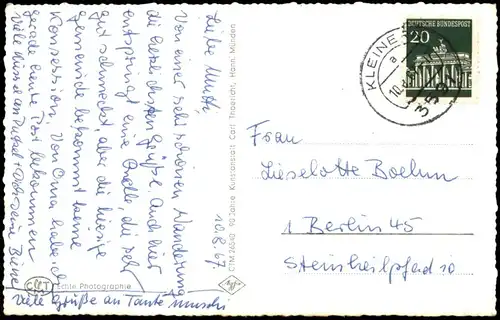 10.8.67
Liebe Mutti
Von einer sehr schönen Wanderung
die herzlichsten Grüße. Auch hier
entspringt eine Quelle, die sehr
gut schmeckt, aber die hiesige
Gemeinde bekommt keine
Konzession. Von Oma habe ich
gerade heute Post bekommen
Viele Küsse an Purzel + Dich Deine
Viele Grüße an Tante Muschi
C&T
Echte Photographie
CTM 24540 90 Jahre Kunstanstalt Carl Thoericht, Hann. Münden
KLEINE
10.8
350
DEUTSCHE BUNDESPOST
20
Frau
Lieselotte Boehm
1 Berlin 45
Steinheilpfad 10